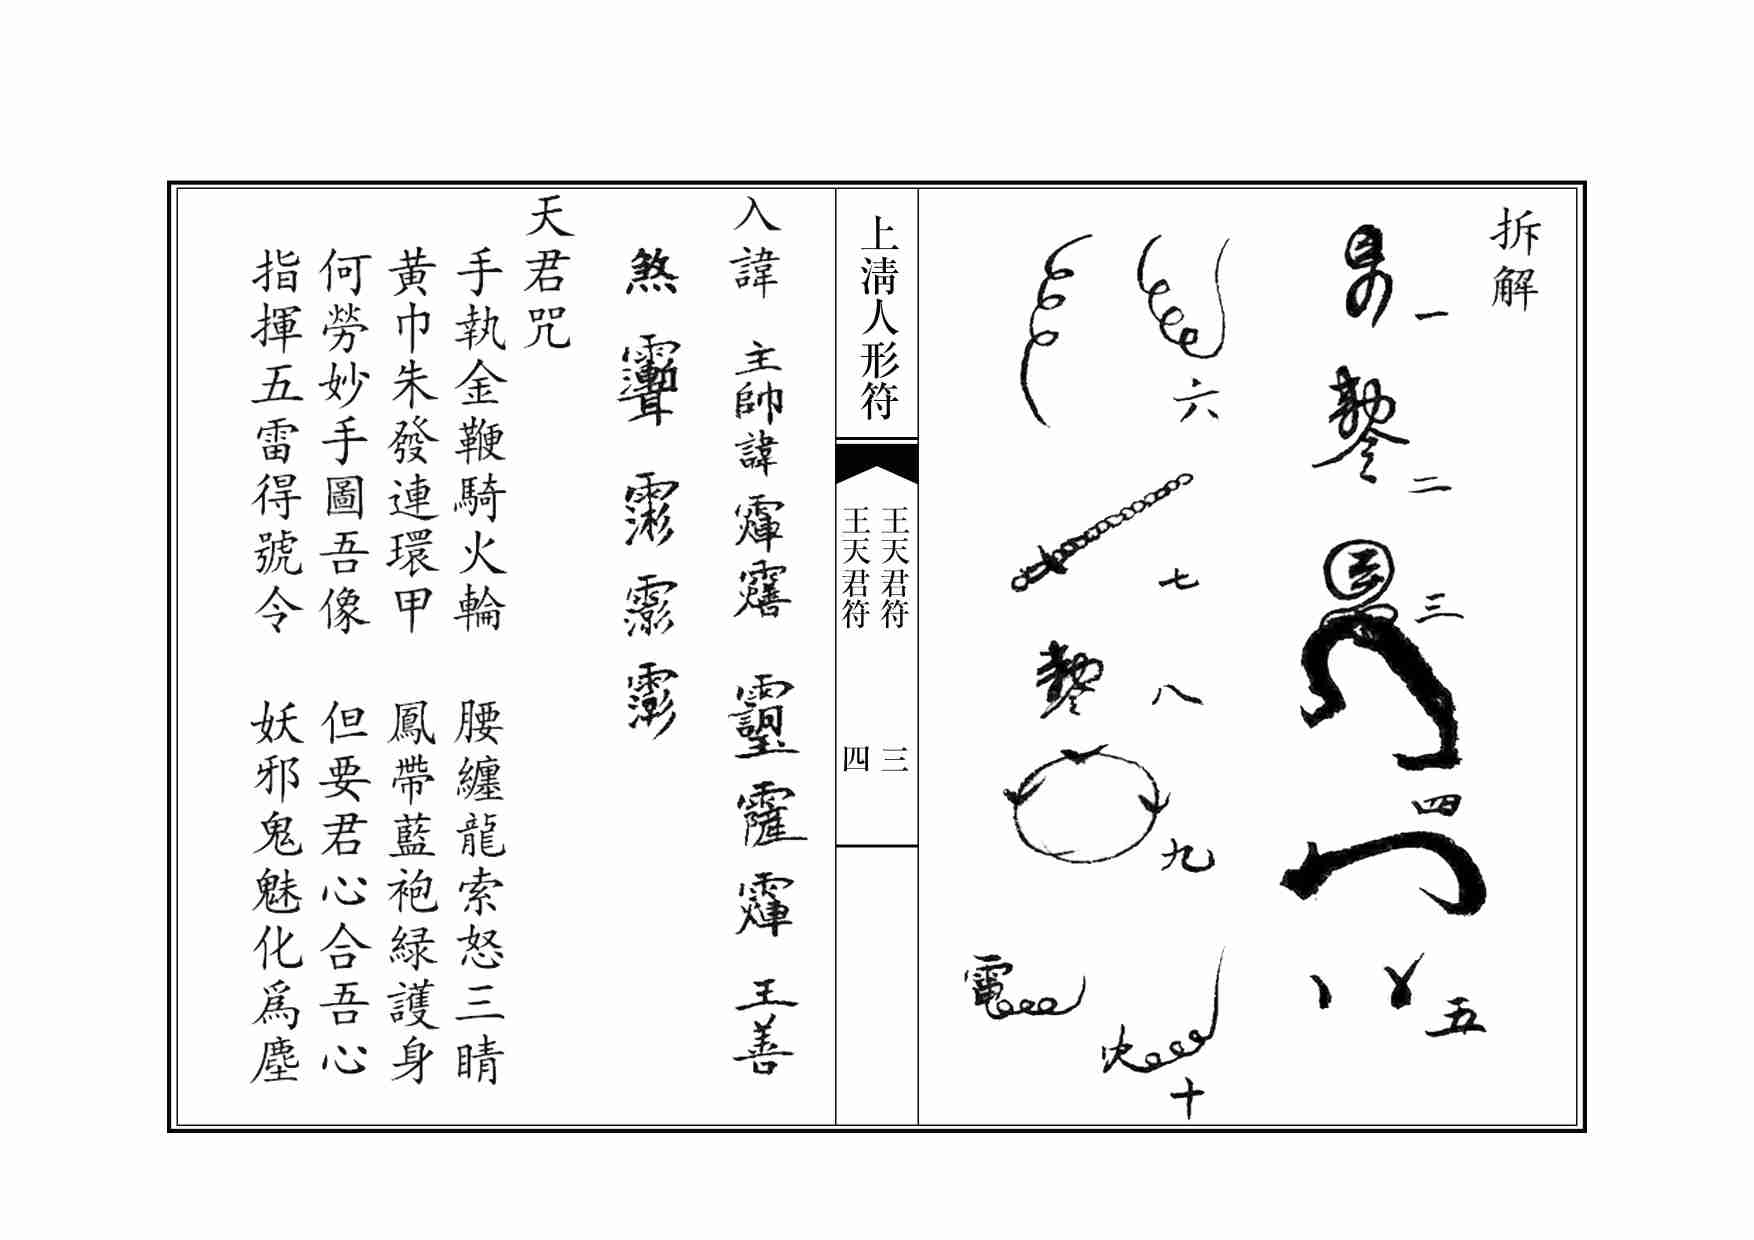 拆解
一
二
三
四
五
六
七
八
九
十
上清人形符
王天君符 三
王天君符 四
入諱 主帥諱 王善
煞
天君咒
手執金鞭騎火輪 腰纏龍索怒三睛
黄巾朱發連環甲 鳳帶藍袍緑護身
何勞妙手圖吾像 但要君心合吾心
指揮五雷得號令 妖邪鬼魅化爲塵